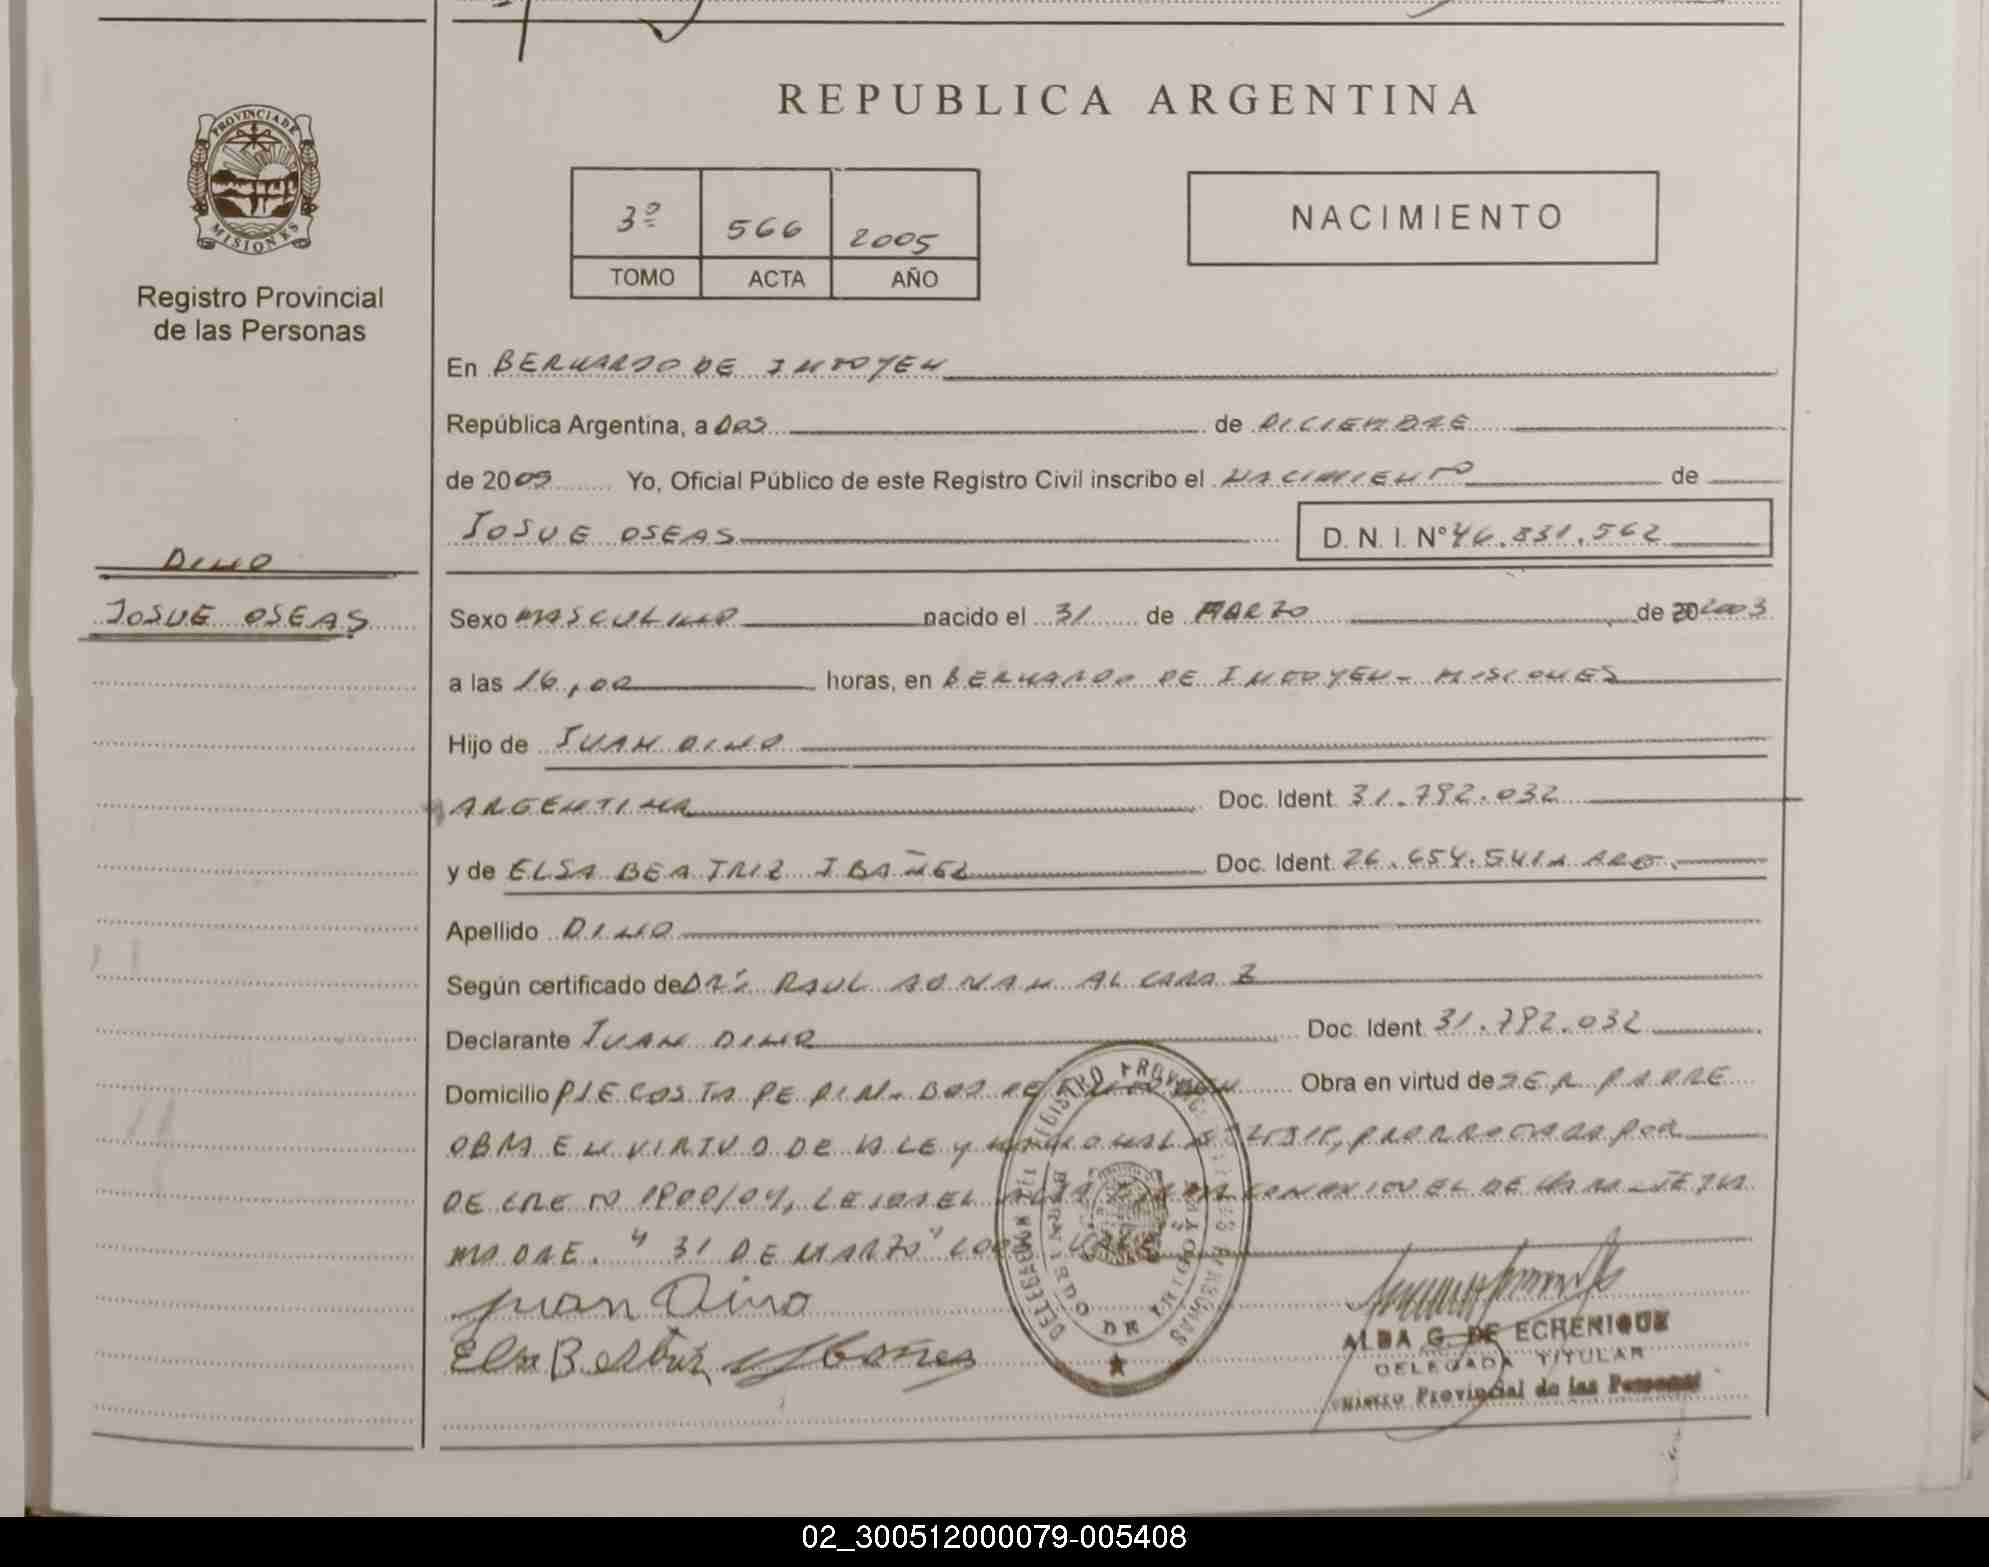 REPUBLICA ARGENTINA
PROVINCIA DE
MISIONES
Registro Provincial
de las Personas
3º 566 2005
TOMO ACTA AÑO
NACIMIENTO
En BERNARDO DE IRIGOYEN
República Argentina, a DOS de DICIEMBRE
de 2005 Yo, Oficial Público de este Registro Civil inscribo el NACIMIENTO de
JOSUE OSEAS D. N. I. Nº 46.831.562
DINO
JOSUE OSEAS
Sexo MASCULINO nacido el 31 de MARZO de 20 2003
a las 16,00 horas, en BERNARDO DE IRIGOYEN - MISIONES
Hijo de JUAN DINO
ARGENTINA Doc. Ident. 31.792.032
y de ELSA BEATRIZ IBAÑEZ Doc. Ident. 26.654.541 - ARG.
Apellido DINO
Según certificado de DR. RAUL ADRIAN ALCARAZ
Declarante JUAN DINO Doc. Ident. 31.792.032
Domicilio PJE COSTA PEPIRI - BDO DE IRIGOYEN Obra en virtud de SER PADRE
OBRA EN VIRTUD DE LA LEY NACIONAL PRORROGADA POR
DECRETO 1900/04, LEIDA EL ACTA FIRMA CONMIGO EL DECLARANTE Y LA
MADRE. " 31 DE MARZO" VALE
Juan Dino
Elsa Beatriz Ibañez
REGISTRO PROVINCIAL DE LAS PERSONAS
DELEGACION
BERNARDO DE IRIGOYEN
ALBA G. DE ECHENIQUE
DELEGADA TITULAR
Registro Provincial de las Personas
02_300512000079-005408